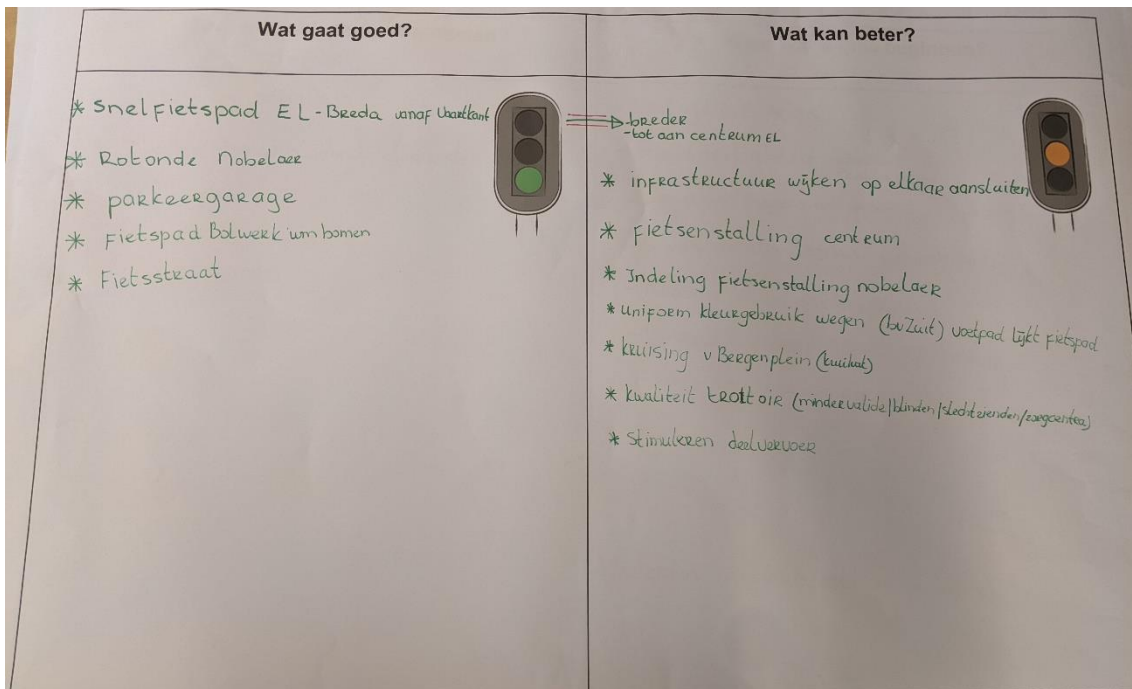 Wat gaat goed?
* Snelfietspad EL-Breda vanaf Vaartkant
* Rotonde Nobelaer
* parkeergarage
* Fietspad Bolwerk ivm bomen
* Fietsstraat
Wat kan beter?
-breder
-tot aan centrum EL
* infrastructuur wijken op elkaar aansluiten
* Fietsenstalling centrum
* Indeling fietsenstalling nobelaer
* uniform kleurgebruik wegen (bv Zuit) voetpad lijkt fietspad
* kruising v Bergenplein (kruihat)
* kwaliteit trottoir (mindervalide/blinden/slechtzienden/zorgcentra)
* Stimuleren deelvervoer